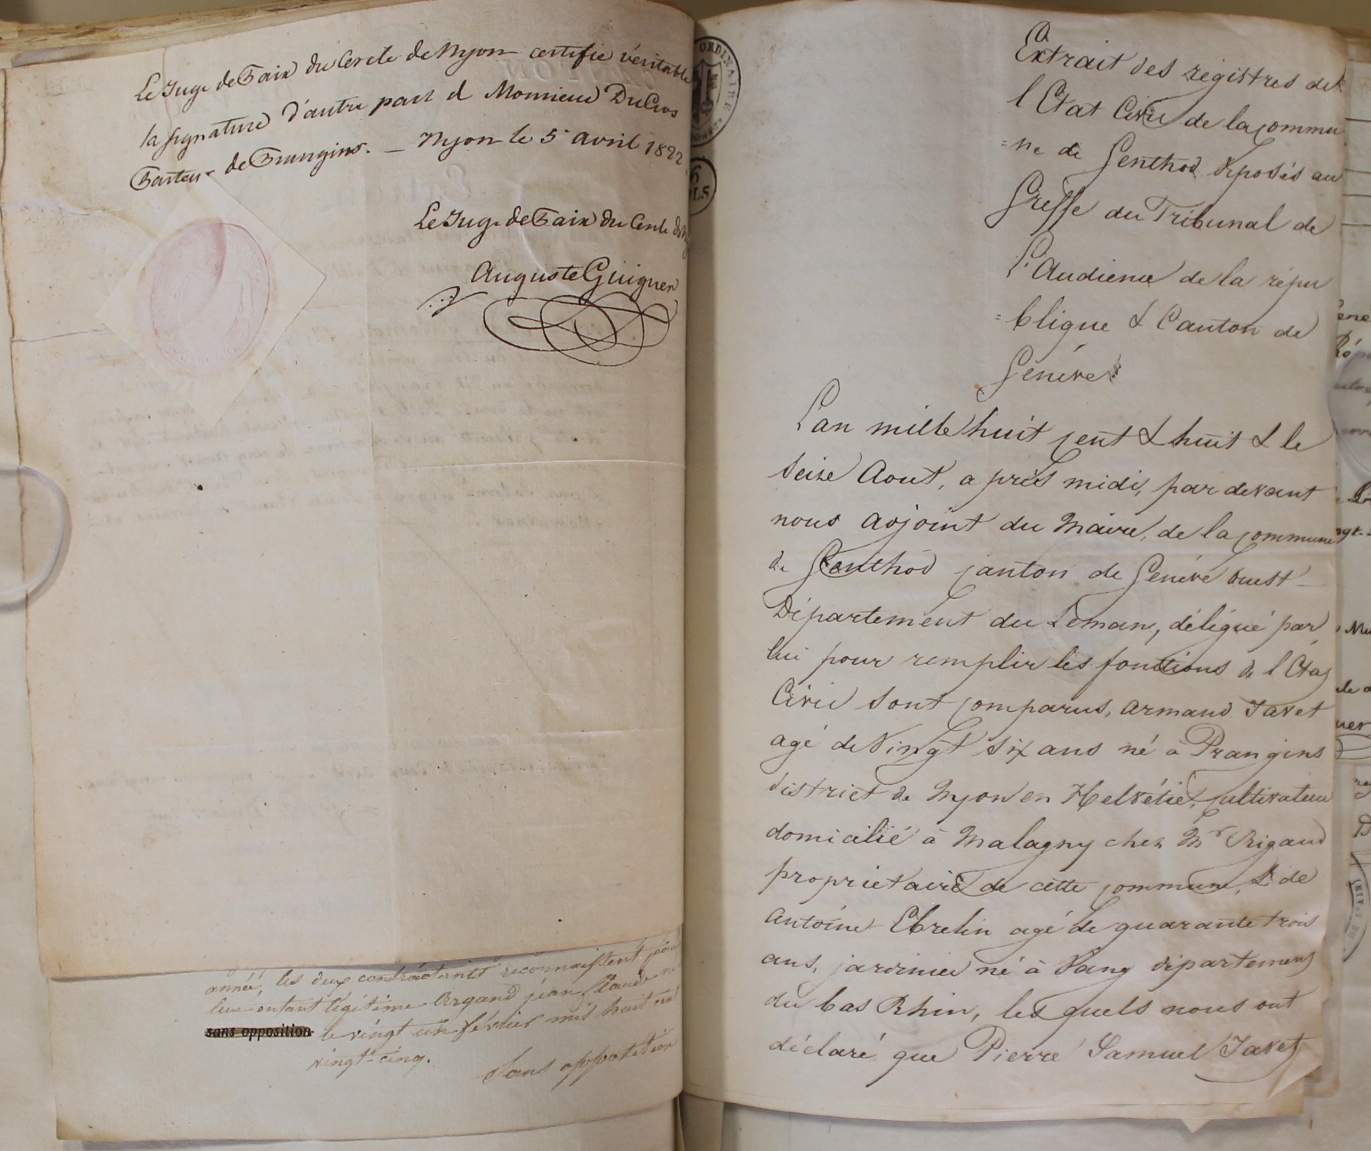 Le Juge de Paix du Cercle de Nyon certifie véritable
la signature d'autre part d Monsieur DuCros
Pasteur de Prangins. _ Nyon le 5 avril 1822
Le Juge de Paix du Cercle de
Auguste Guiguer
année, les deux contractants reconnaissent pour
leur enfant légitime Argand jean Claude
sans opposition le vingt un février mil huit cent
vingt-cinq.
Sans opposition
ORDINAIRE
Extrait des régistres de
l Etat Civil de la commu
=ne de Genthod déposés au
Greffe du Tribunal de
l'Audience de la répu
=blique & Canton de
Genève
L'an mille huit cent & huit & le
seize Aout, a près midi, par devant
nous adjoint du Maire, de la commune
de Genthod canton de Genève ouest
Département du Leman, délégué par
lui pour remplir les fonctions de l Etat
Civil sont comparus, armand Javet
agé de vingt six ans né à Prangins
district de Nyon en Helvétie, cultivateur
domicilié à Malagny chez Mr Rigaud
proprietaire de cette commune, & de
antoine Ebrelin agé de quarante trois
ans, jardinier né à Vang département
du bas Rhin, les quels nous ont
déclaré que Pierre Samuel Javet